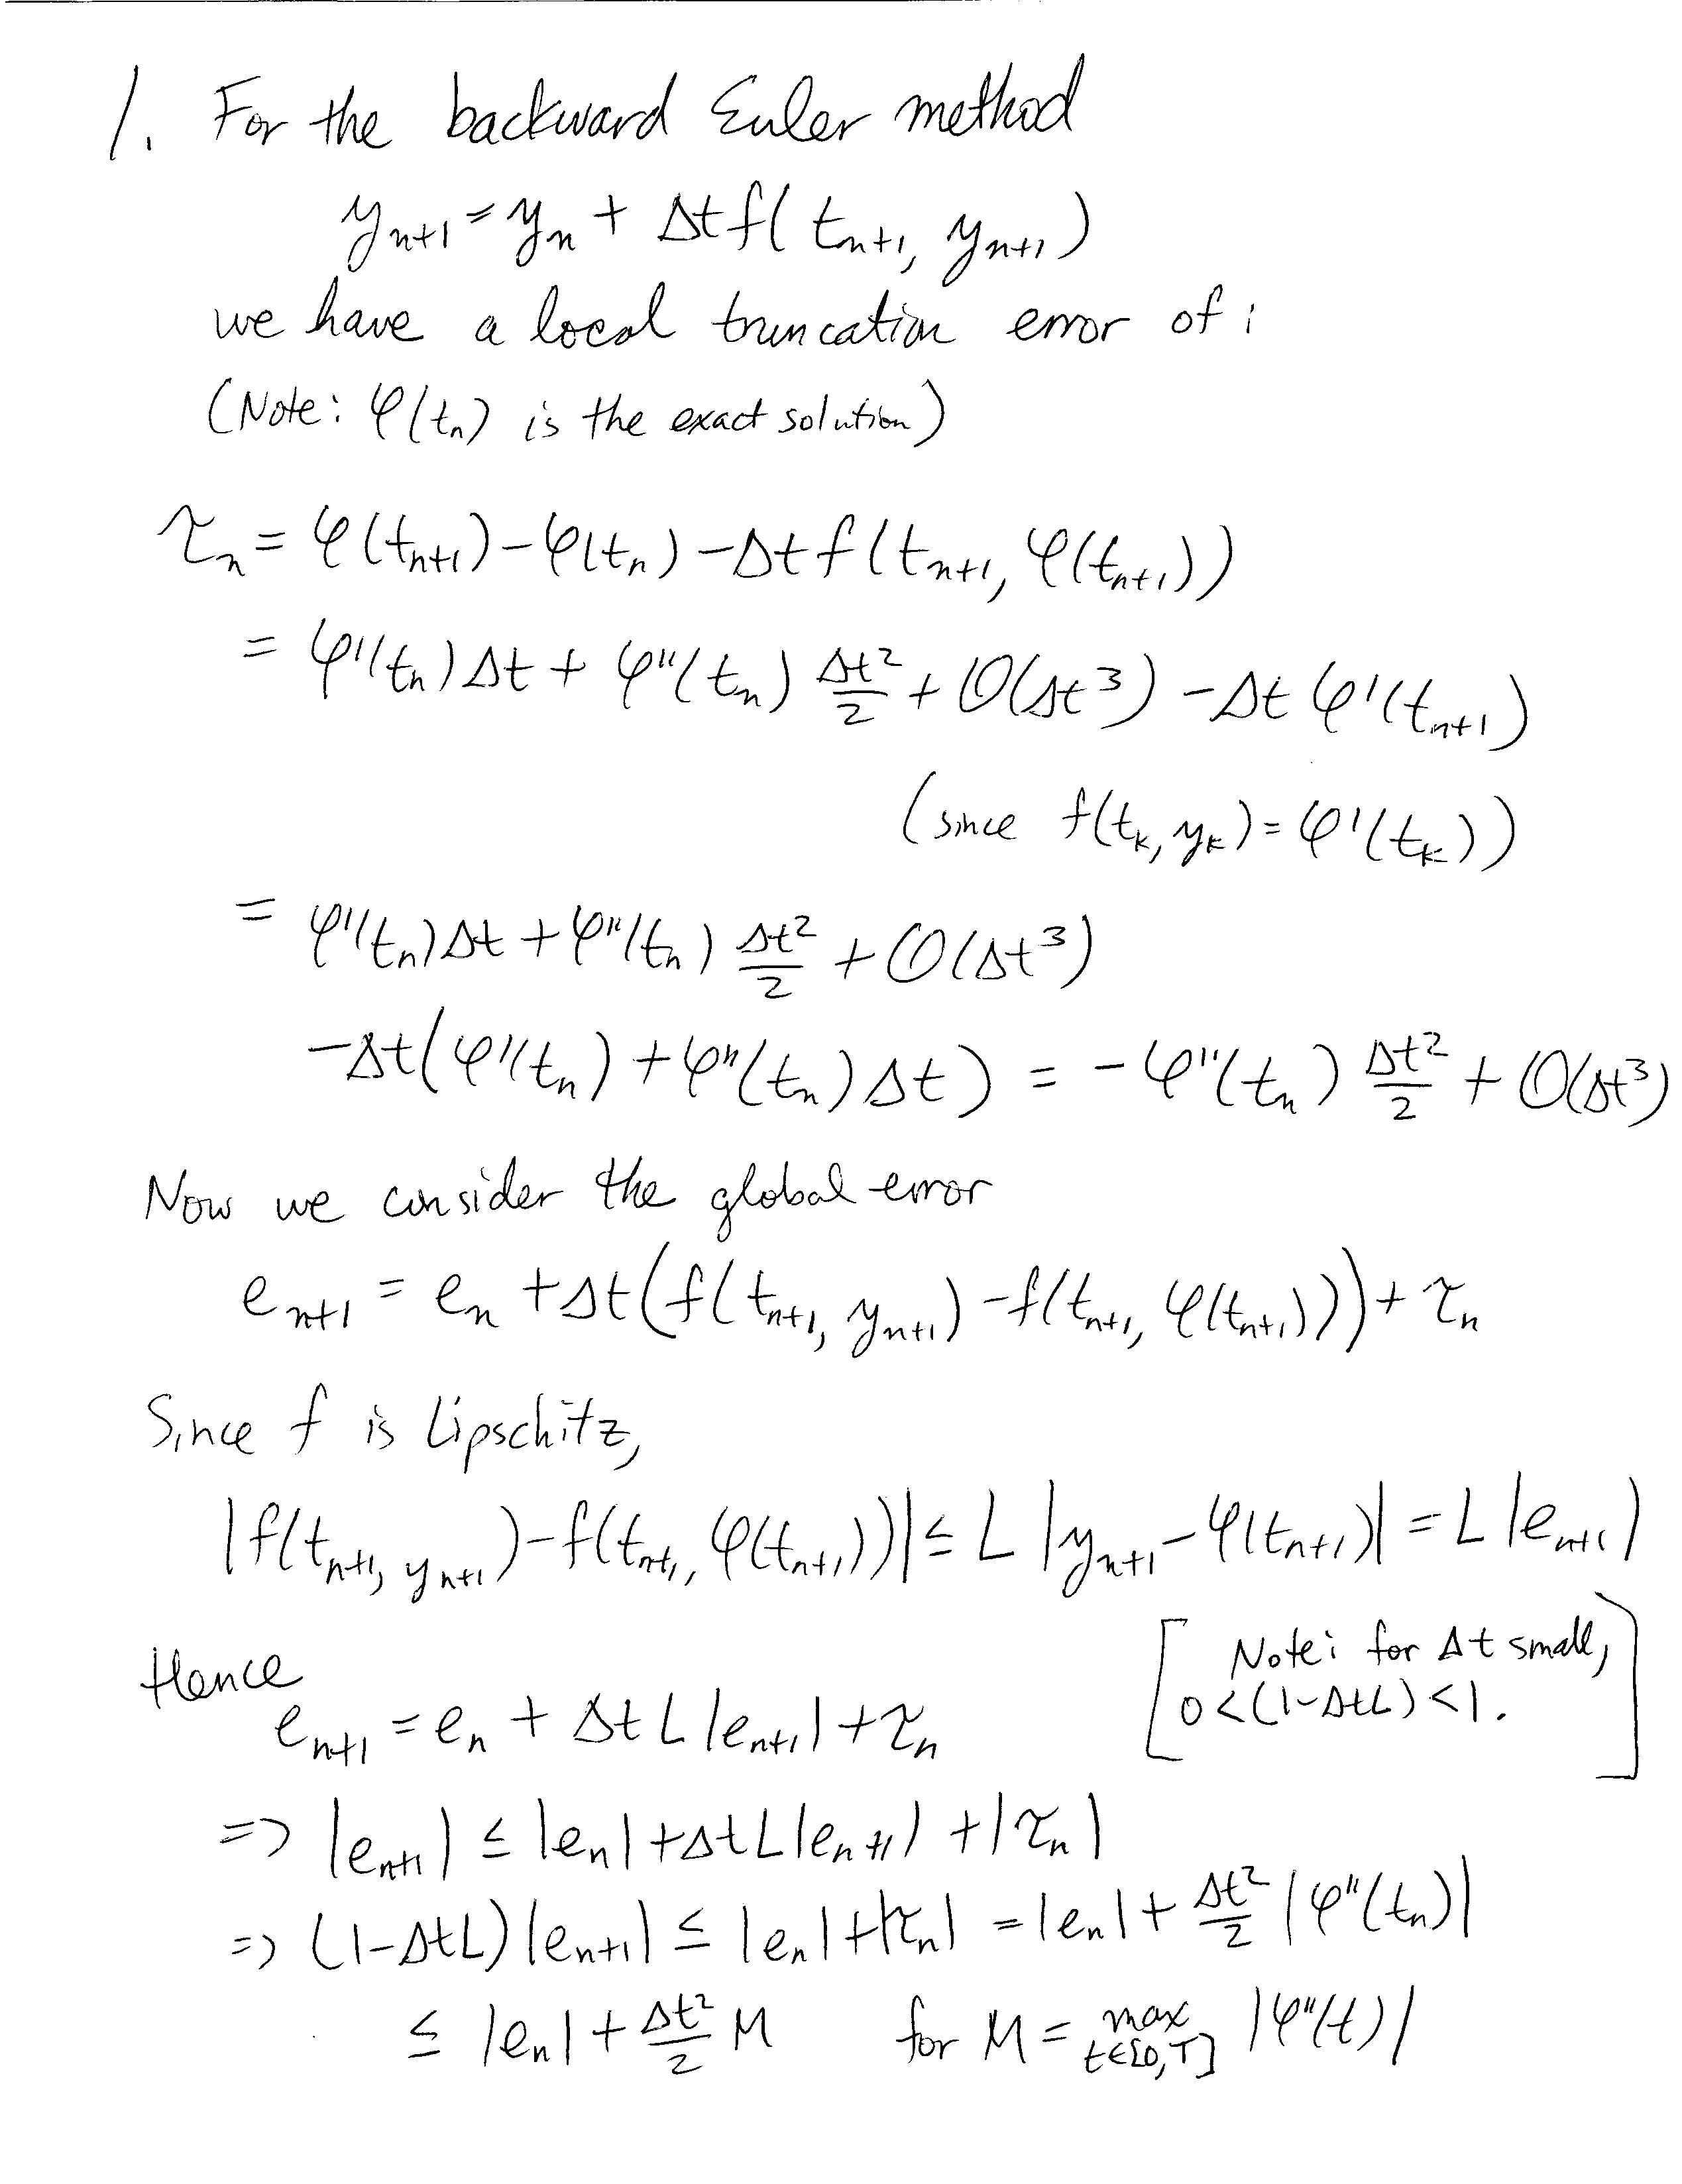 1. For the backward Euler method
y_{n+1} = y_n + Δt f(t_{n+1}, y_{n+1})
we have a local truncation error of:
(Note: φ(t_n) is the exact solution)
τ_n = φ(t_{n+1}) - φ(t_n) - Δt f(t_{n+1}, φ(t_{n+1}))
= φ'(t_n) Δt + φ''(t_n) Δt²/2 + O(Δt³) - Δt φ'(t_{n+1})
(since f(t_k, y_k) = φ'(t_k))
= φ'(t_n) Δt + φ''(t_n) Δt²/2 + O(Δt³)
-Δt(φ'(t_n) + φ''(t_n) Δt) = -φ''(t_n) Δt²/2 + O(Δt³)
Now we consider the global error
e_{n+1} = e_n + Δt(f(t_{n+1}, y_{n+1}) - f(t_{n+1}, φ(t_{n+1}))) + τ_n
Since f is Lipschitz,
|f(t_{n+1}, y_{n+1}) - f(t_{n+1}, φ(t_{n+1}))| ≤ L |y_{n+1} - φ(t_{n+1})| = L |e_{n+1}|
Hence
[Note: for Δt small,
0 < (1-ΔtL) < 1.]
e_{n+1} = e_n + Δt L |e_{n+1}| + τ_n
=> |e_{n+1}| ≤ |e_n| + Δt L |e_{n+1}| + |τ_n|
=> (1-ΔtL) |e_{n+1}| ≤ |e_n| + |τ_n| = |e_n| + Δt²/2 |φ''(t_n)|
≤ |e_n| + Δt²/2 M for M = max_{t∈[0,T]} |φ''(t)|